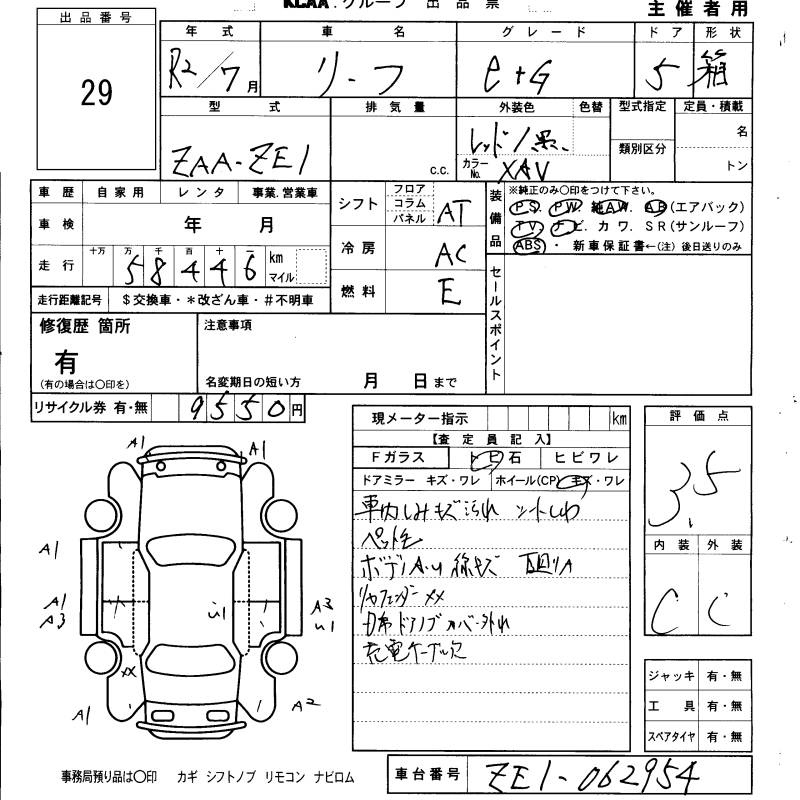 KCAA.グループ 出 品 票 主 催 者 用
出 品 番 号
29
年 式 車 名 グ レ ー ド ド ア 形 状
R2/7月 リーフ e+G 5 箱
型 式 排 気 量 外装色 色替 型式指定 定員・積載
ZAA-ZE1 c.c. レッド/黒 類別区分 名
カラーNo. XAV トン
車 歴 自 家 用 レ ン タ 事業.営業車
車 検 年 月
走 行 十万 万 千 百 十 一 km マイル
5 8 4 4 6
走行距離記号 $交換車・*改ざん車・#不明車
シフト フロア コラム パネル AT
冷 房 AC
燃 料 E
装備品 ※純正のみ〇印をつけて下さい。
PS. PW. 純AW. AB(エアバック)
TV. ナビ. カ ワ. SR(サンルーフ)
ABS ・ 新車保証書←(注) 後日送りのみ
セールスポイント
修復歴 箇所
有
(有の場合は〇印を)
注意事項
名変期日の短い方 月 日まで
リサイクル券 有・無 9550円
現メーター指示 km
【査 定 員 記 入】
Fガラス トビ石 ヒビワレ
ドアミラー キズ・ワレ ホイール(CP) キズ・ワレ
車内しみキズ汚れ シートしわ
ペット毛
ボディA.U 線キズ 下回りA
リヤフェンダー XX
ドアノブカバー外れ
充電ケーブル欠
評 価 点
3.5
内 装 外 装
C C
ジャッキ 有・無
工 具 有・無
スペアタイヤ 有・無
A1 A1
A1
A1 A3
A3 U1
U1
XX
A1 A2
事務局預り品は〇印 カギ シフトノブ リモコン ナビロム
車台番号 ZE1-062954